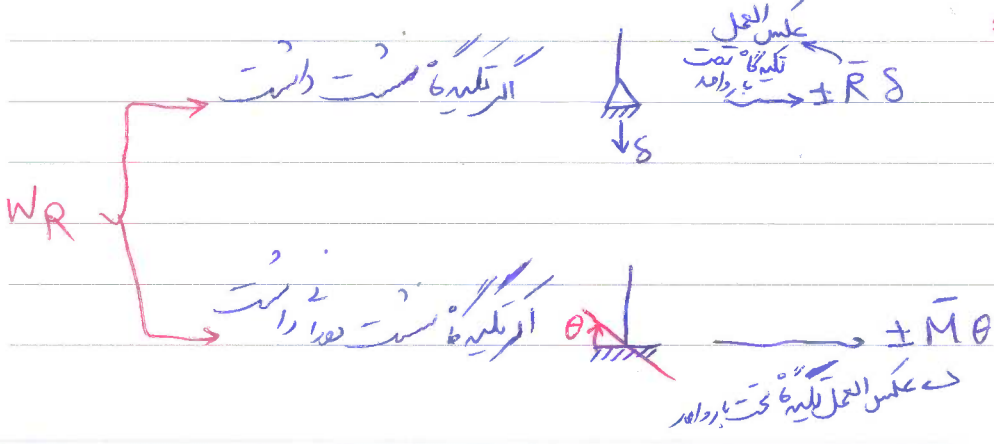 اگر تکیه گاه نشست داشت
δ
عکس العمل
تکیه گاه تحت
بار واحد
± R̄ δ
W_R
اگر تکیه گاه نشست دورانی داشت
θ
± M̄ θ
عکس العمل تکیه گاه تحت بار واحد